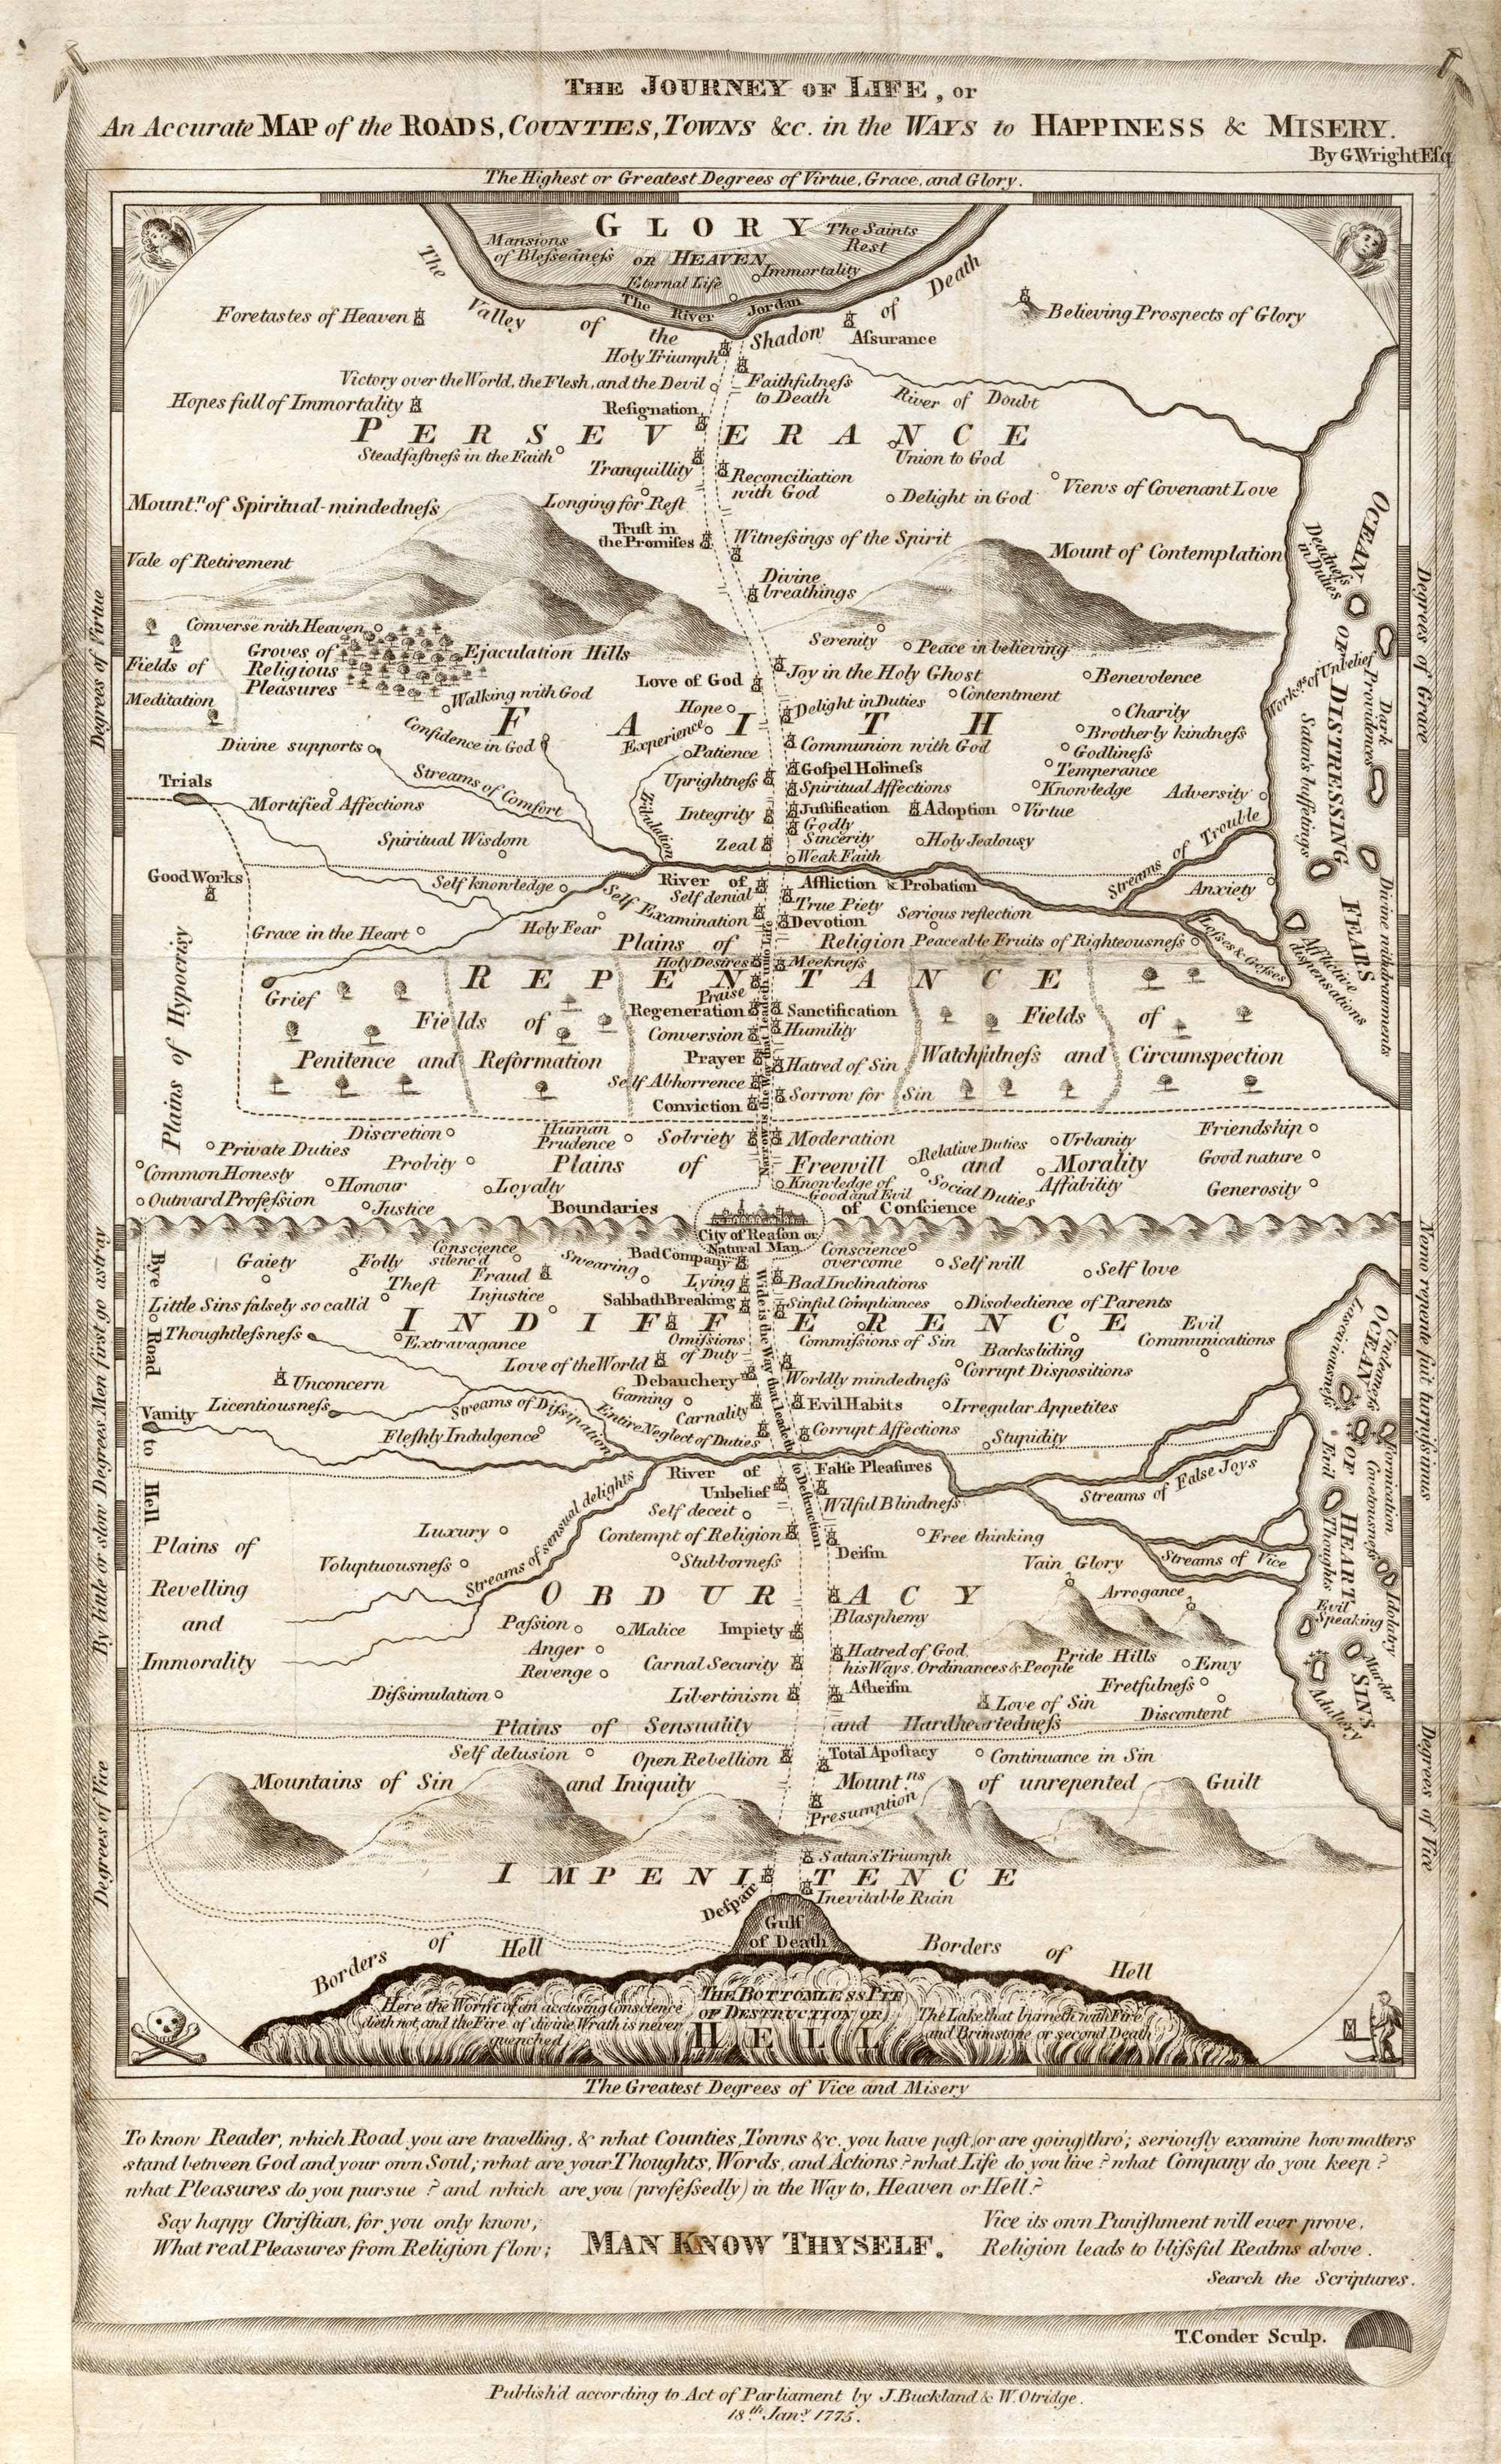 THE JOURNEY OF LIFE, or
An Accurate MAP of the ROADS, COUNTIES, TOWNS &c. in the WAYS to HAPPINESS & MISERY.
By G. Wright Esq.
The Highest or Greatest Degrees of Virtue, Grace, and Glory.
GLORY
Mansions of Blessedness
The Saints Rest
OR HEAVEN
Immortality
Eternal Life
The River Jordan
The Valley of the Shadow of Death
Foretastes of Heaven
Believing Prospects of Glory
Assurance
Holy Triumph
Victory over the World, the Flesh, and the Devil
Faithfulneſs to Death
Hopes full of Immortality
Reſignation
River of Doubt
PERSEVERANCE
Steadfaſtneſs in the Faith
Union to God
Tranquillity
Reconciliation with God
Views of Covenant Love
Mount.n of Spiritual-mindedneſs
Longing for Reſt
Delight in God
Truſt in the Promiſes
Witneſsings of the Spirit
Mount of Contemplation
Vale of Retirement
Divine breathings
Converse with Heaven
Serenity
Peace in believing
Groves of Religious Pleasures
Ejaculation Hills
Fields of Meditation
Joy in the Holy Ghost
Love of God
Benevolence
Walking with God
Contentment
Hope
Delight in Duties
Charity
FAITH
Confidence in God
Experience
Brotherly kindneſs
Divine supports
Patience
Communion with God
Godlineſs
Streams of Comfort
Goſpel Holineſs
Temperance
Trials
Uprightneſs
Spiritual Affections
Knowledge
Adversity
Mortified Affections
Tribulation
Integrity
Juſtification
Adoption
Virtue
Godly Sincerity
Spiritual Wisdom
Zeal
Holy Jealousy
Weak Faith
Streams of Trouble
Good Works
Self knowledge
River of
Affliction & Probation
Anxiety
Self denial
Self Examination
True Piety
Serious reflection
Devotion
Grace in the Heart
Holy Fear
Loſses & Croſses
Plains of Religion
Peaceable Fruits of Righteousneſs
Holy Desires
Meekneſs
REPENTANCE
Grief
Praise
Regeneration
Sanctification
Fields of Penitence and Reformation
Conversion
Humility
Fields of Watchfulneſs and Circumspection
Prayer
Hatred of Sin
Self Abhorrence
Conviction
Sorrow for Sin
Narrow is the Way that leadeth unto Life
Plains of Hypocrisy
OCEAN OF DISTRESSING FEARS
Deadneſs in Duties
Work.gs of Unbelief
Dark Providences
Satan's buffetings
Divine withdrawments
Afflictive dispensations
Discretion
Human Prudence
Sobriety
Moderation
Relative Duties
Urbanity
Friendship
Private Duties
Probity
Plains of Freewill and Morality
Good nature
Common Honesty
Honour
Loyalty
Knowledge of Good and Evil
Social Duties
Affability
Generosity
Outward Profeſsion
Justice
Boundaries of Conſcience
City of Reaſon or Natural Man
Gaiety
Folly
Conscience silenc'd
Swearing
Bad Company
Conscience overcome
Self will
Self love
Theft
Fraud
Injustice
Lying
Bad Inclinations
Little Sins falsely so call'd
Sabbath Breaking
Sinful Compliances
Disobedience of Parents
INDIFFERENCE
Thoughtleſsneſs
Extravagance
Omiſsions of Duty
Commiſsions of Sin
Backsliding
Evil Communications
Love of the World
Corrupt Dispositions
Unconcern
Debauchery
Worldly mindedneſs
Licentiousneſs
Gaming
Carnality
Evil Habits
Irregular Appetites
Vanity
Streams of Diſsipation
Entire Neglect of Duties
Fleſhly Indulgence
Corrupt Affections
Stupidity
River of
Falſe Pleaſures
Unbelief
Streams of False Joys
Streams of sensual delights
Self deceit
Wilful Blindneſs
Luxury
Contempt of Religion
Free thinking
Deiſm
Voluptuousneſs
Stubborneſs
Vain Glory
Streams of Vice
Wide is the Way that leadeth to Destruction
Bye Road to Hell
Plains of Revelling and Immorality
OBDURACY
Arrogance
Paſsion
Malice
Impiety
Blasphemy
Anger
Hatred of God, his Ways, Ordinances & People
Pride Hills
Envy
Revenge
Carnal Security
Fretfulneſs
Diſsimulation
Libertinism
Atheiſm
Love of Sin
Discontent
OCEAN OF HEART SINS
Lasciviousneſs
Uncleanneſs
Fornication
Covetousneſs
Evil Thoughts
Idolatry
Evil Speaking
Murder
Adultery
Plains of Sensuality and Hardheartedneſs
Self delusion
Open Rebellion
Total Apoſtacy
Continuance in Sin
Mountains of Sin and Iniquity
Mount.ns of unrepented Guilt
Presumption
Satan's Triumph
IMPENITENCE
Deſpair
Inevitable Ruin
Gulf of Death
Borders of Hell
Borders of Hell
Here the Worm of an accusing Conscience dieth not, and the Fire of divine Wrath is never quenched
THE BOTTOMLESS PIT OF DESTRUCTION OR HELL
The Lake that burneth with Fire and Brimstone or second Death
The Greatest Degrees of Vice and Misery
Degrees of Virtue
By little or slow Degrees Men first go astray
Degrees of Vice
Degrees of Grace
Nemo repente fuit turpissimus
Degrees of Vice
To know Reader, which Road you are travelling, & what Counties, Towns &c. you have paſt (or are going) thro'; seriouſly examine how matters
stand between God and your own Soul; what are your Thoughts, Words, and Actions? what Life do you live? what Company do you keep?
what Pleasures do you pursue? and which are you (profeſsedly) in the Way to, Heaven or Hell?
Say happy Chriſtian, for you only know,
What real Pleasures from Religion flow;
MAN KNOW THYSELF.
Vice its own Puniſhment will ever prove,
Religion leads to bliſsful Realms above.
Search the Scriptures.
T. Conder Sculp.
Publish'd according to Act of Parliament by J. Buckland & W. Otridge.
18th Jany. 1775.